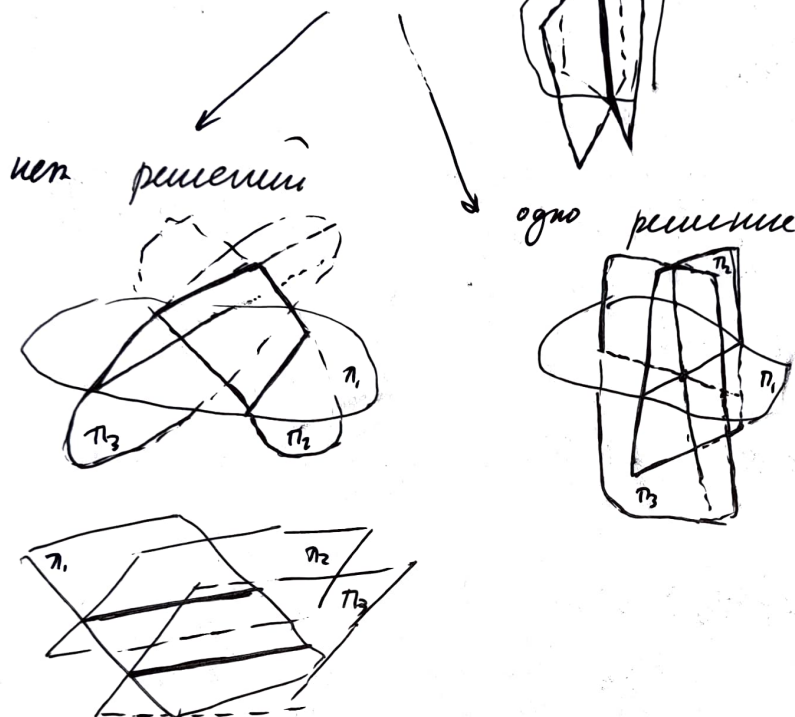 нет решений
одно решение
π₂
π₁
π₁
π₃
π₂
π₃
π₁
π₂
π₃